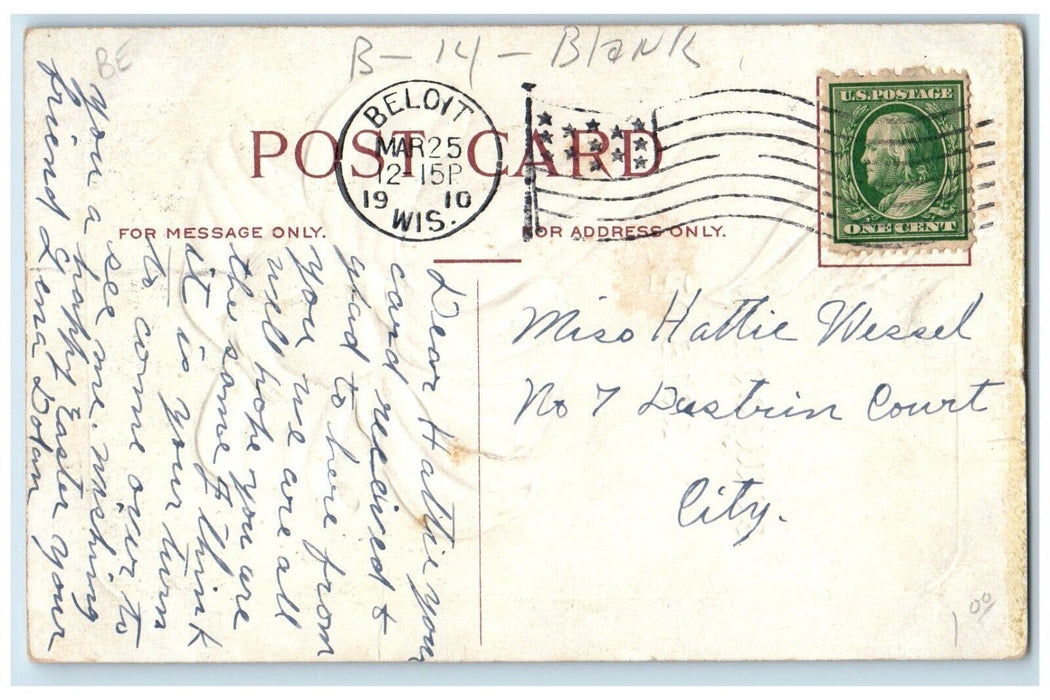 BE
B-14-Blank
POST CARD
BELOIT
MAR 25
12-15P
19 10
WIS.
U.S. POSTAGE
ONE CENT
FOR MESSAGE ONLY.
FOR ADDRESS ONLY.
Dear Hattie your
card recived &
glad to here from
you we are all
well hope you are
the same I think
it is your turn
to come over to
see me. wishing
you a happy Easter your
friend Lena Dolan
Miss Hattie Wessel
No 7 Court
City.
1 00